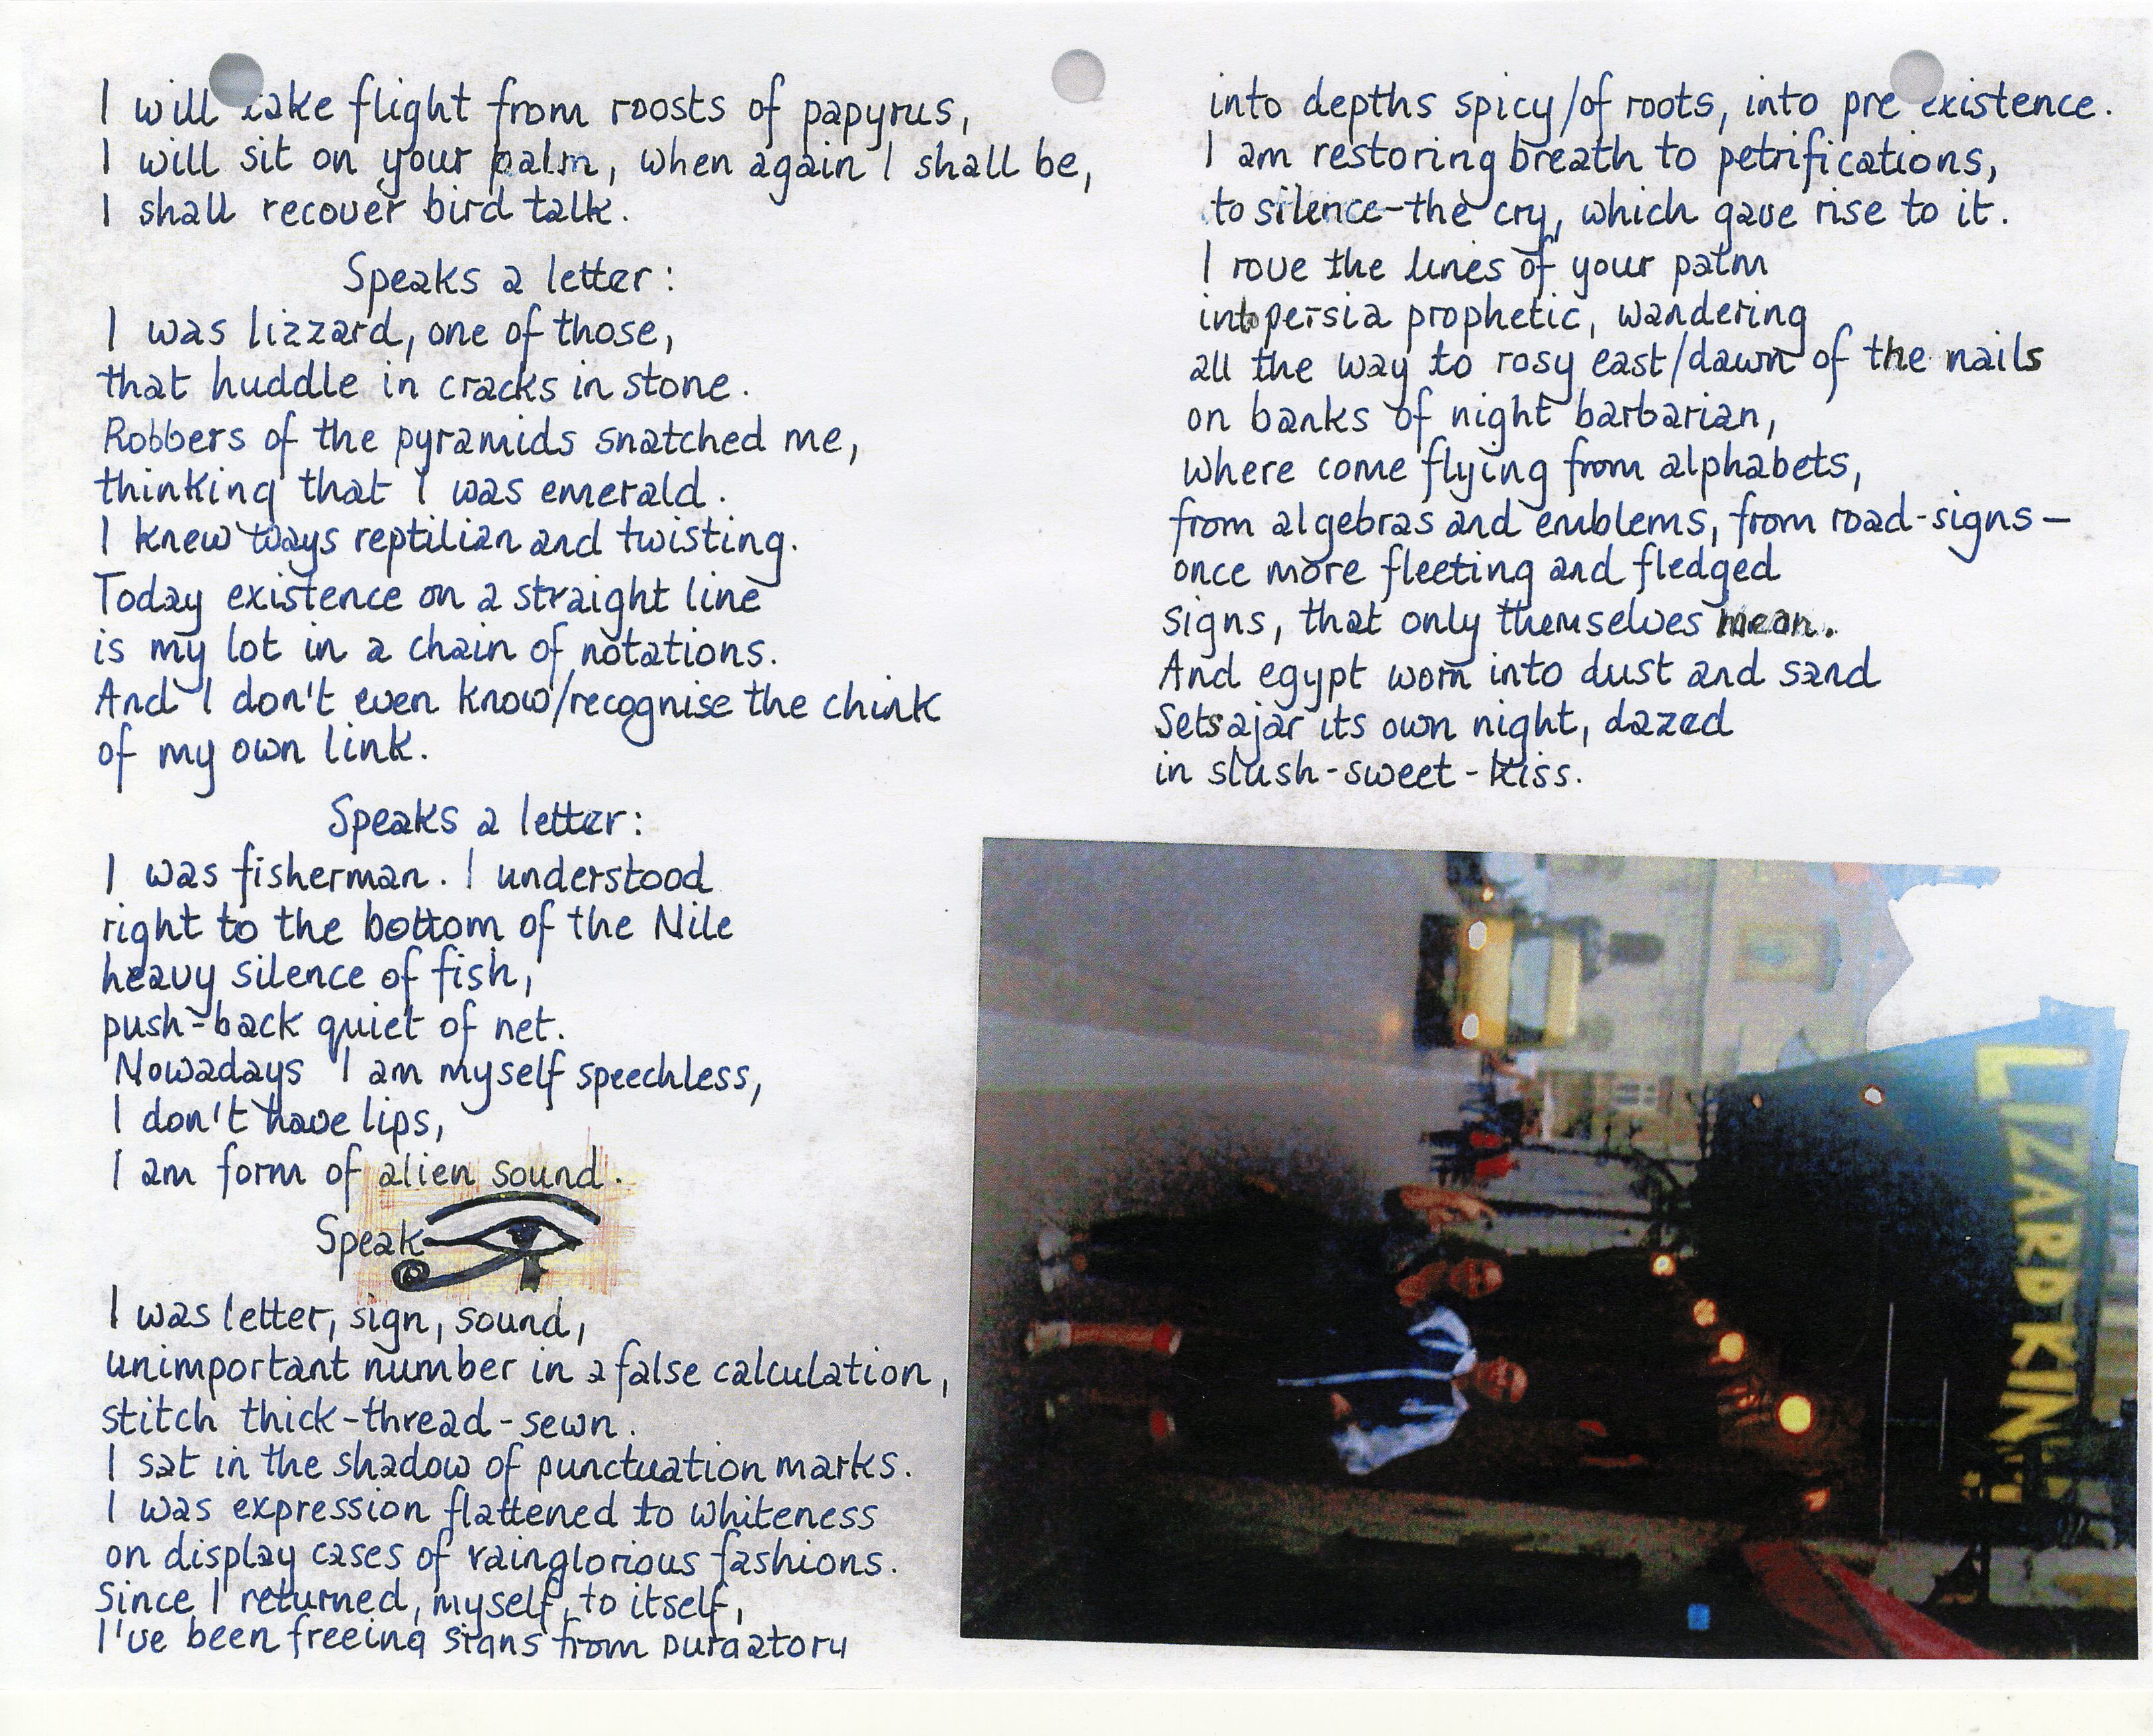 I will take flight from roosts of papyrus,
I will sit on your palm, when again I shall be,
I shall recover bird talk.
Speaks a letter:
I was lizzard, one of those,
that huddle in cracks in stone.
Robbers of the pyramids snatched me,
thinking that I was emerald.
I knew ways reptilian and twisting.
Today existence on a straight line
is my lot in a chain of notations.
And I don't even know/recognise the chink
of my own link.
Speaks a letter:
I was fisherman. I understood
right to the bottom of the Nile
heavy silence of fish,
push-back quiet of net.
Nowadays I am myself speechless,
I don't have lips,
I am form of alien sound.
Speak
I was letter, sign, sound,
unimportant number in a false calculation,
stitch thick-thread-sewn.
I sat in the shadow of punctuation marks.
I was expression flattened to whiteness
on display cases of vainglorious fashions.
Since I returned, myself, to itself,
I've been freeing signs from purgatory
into depths spicy/of roots, into pre existence.
I am restoring breath to petrifications,
to silence-the cry, which gave rise to it.
I rove the lines of your palm
into persia prophetic, wandering
all the way to rosy east/dawn of the nails
on banks of night barbarian,
where come flying from alphabets,
from algebras and emblems, from road-signs-
once more fleeting and fledged
signs, that only themselves mean.
And egypt worn into dust and sand
Sets ajar its own night, dazed
in slush-sweet-kiss.
LIZARD KIN